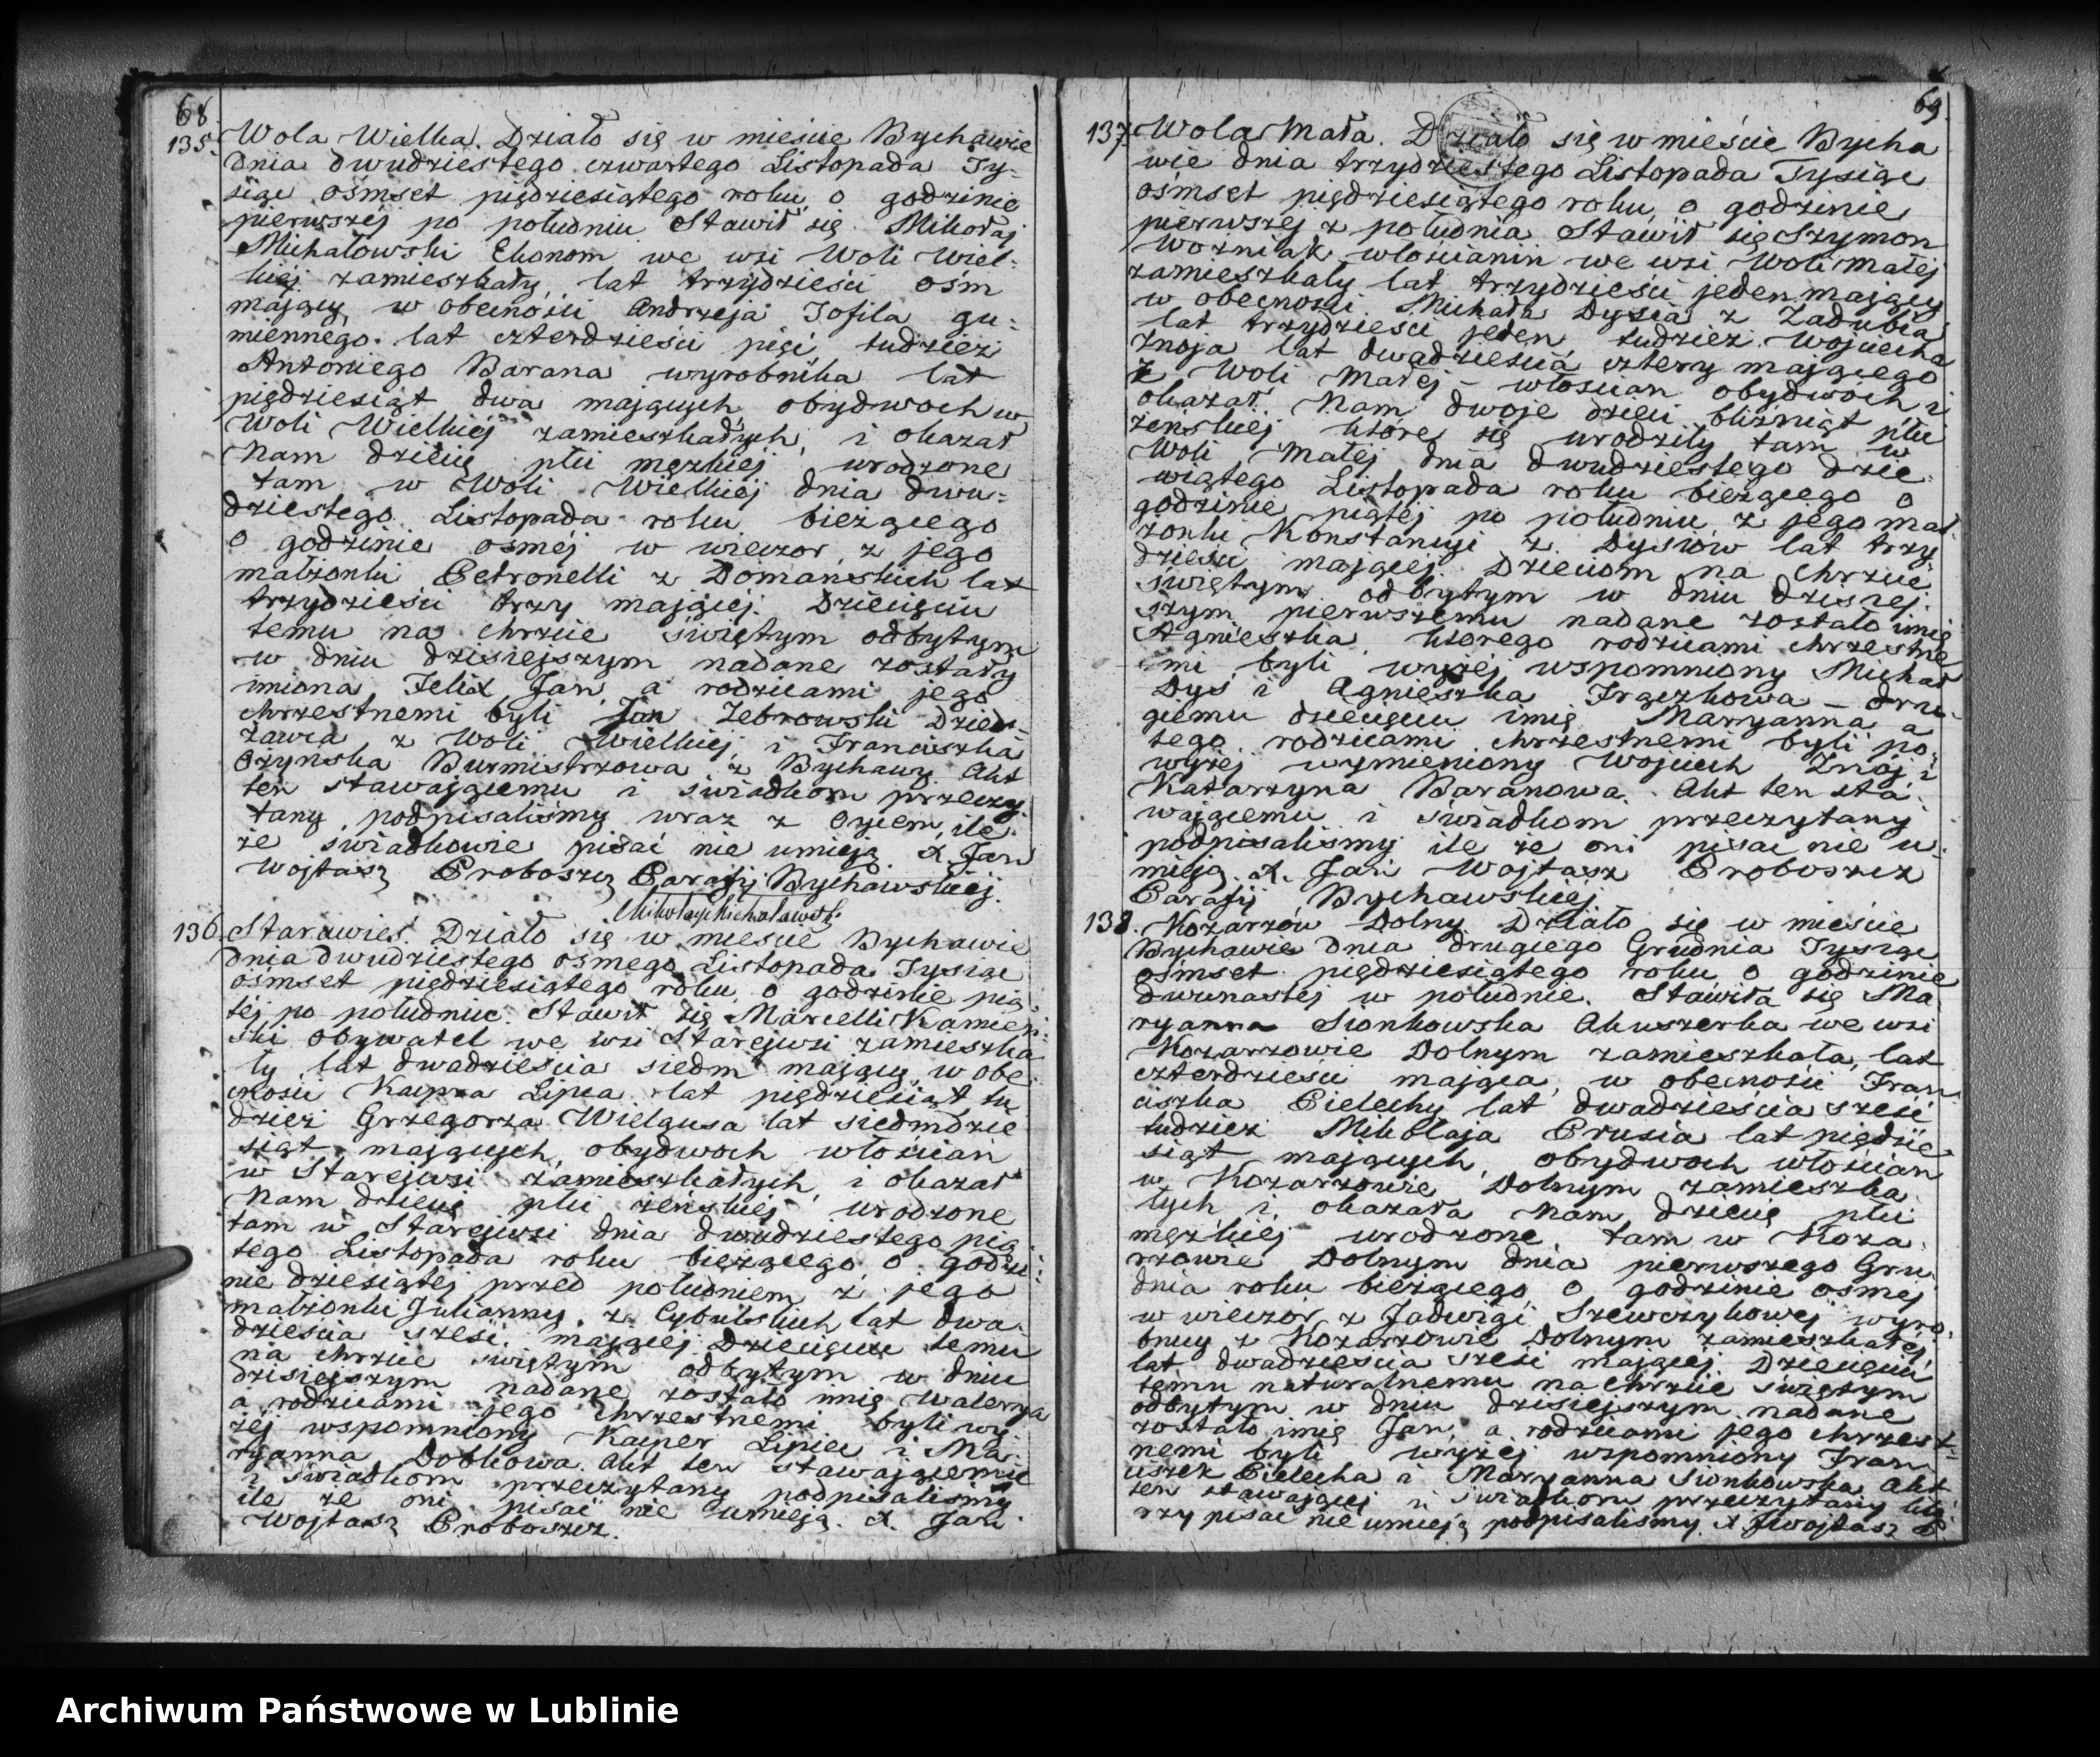 68
135. Wola Wielka. Działo się w mieście Bychawie
dnia dwudziestego czwartego Listopada Ty=
siąc ośmset pięдziesiątego roku, o godzinie
pierwszej po południu Stawił się Mikołaj
Michałowski Ekonom we wsi Woli Wiel=
kiej zamieszkały, lat trzydzieści ośm
mający, w obecności Andrzeja Tofila gu=
miennego lat czterdzieści pięć, tudzież
Antoniego Barana wyrobnika lat
pięćdziesiąt dwa mających obydwoch w
Woli Wielkiej zamieszkałych, i okazał
Nam dziecię płci męzkiej urodzone
tam w Woli Wielkiej dnia dwu=
dziestego Listopada roku bieżącego
o godzinie osmej w wieczor, z jego
małżonki Petronelli z Domańskich lat
trzydzieści trzy mającej. Dziecięciu
temu na chrzcie świętym odbytym
w dniu dzisiejszym nadane zostały
imiona Felix Jan, a rodzicami jego
chrzestnemi byli Jan Zebrowski Dzier=
żawca z Woli Wielkiej i Franciszka
Ożynska Burmistrzowa z Bychawy. Akt
ten stawającemu i świadkom przeczy
tany podpisaliśmy wraz z Ojcem, ile
że świadkowie pisać nie umieją. X. Jan
Wojtasz Proboszcz Parafij Bychawskiej.
Mikołay Michałowski
136. Starawieś. Działo się w mieście Bychawie
dnia dwudziestego osmego Listopada Tysiąc
ośmset pięдziesiątego roku, o godzinie pią
tej po południu. Stawił się Marcelli Kamień=
ski obywatel we wsi Starejwsi zamieszka
ły, lat dwadzieścia siedm mający, w obe
cności Kacpra Lipca lat pięдziesiąt tu
dzież Grzegorza Wielgusa lat siedmdzie
siąt mających, obydwoch włościan
w Starejwsi zamieszkałych, i okazał
Nam dziecię płci żeńskiej urodzone
tam w Starejwsi dnia dwudziestego pią
tego Listopada roku bieżącego o godzi=
nie dziesiątej przed południem z jego
małżonki Julianny z Cybulskich lat dwa
dzieścia sześć mającej. Dziecięciu temu
na chrzcie świętym odbytym w dniu
dzisiejszym nadane zostało imię Walerya
a rodzicami jego chrzestnemi byli wy
żej wspomniony Kacper Lipiec i Ma
ryanna Dobkowa. Akt ten stawającemu
i świadkom przeczytany podpisaliśmy
ile że oni pisać nie umieją. X. Jan
Wojtasz Proboszcz.
69.
137. Wola Mała. Działo się w mieście Bycha
wie dnia trzydziestego Listopada Tysiąc
ośmset pięдziesiątego roku, o godzinie
pierwszej z południa Stawił się Szymon
Wozniak włościanin we wsi Woli Małej
zamieszkały lat trzydzieści jeden mający
w obecności Michała Dysia z Zadubia
lat trzydzieści jeden, tudzież Wojciecha
Znoja lat dwadzieścia cztery mającego
z Woli Małej - włościan obydwoch i
okazał Nam dwoje dzieci bliźniąt płci
żeńskiej które się urodziły tam w
Woli Małej dnia dwudziestego dzie
wiątego Listopada roku bieżącego o
godzinie piątej po południu z jego mał
żonki Konstancyi z Dysiow lat trzy
dzieści mającej. Dzieciom na chrzcie
świętym odbytym w dniu dzisiej=
szym pierwszemu nadane zostało imię
Agnieszka, którego rodzicami chrzestne
mi byli wyżej wspomniony Michał
Dyś i Agnieszka Frączkowa - dru
giemu dziecięciu imię Maryanna a
tego rodzicami chrzestnemi byli po
wyżej wymieniony Wojciech Znój i
Katarzyna Baranowa. Akt ten sta
wającemu i świadkom przeczytany
podpisaliśmy ile że oni pisać nie u=
mieją. X. Jan Wojtasz Proboszcz
Parafij Bychawskiej.
138. Kozarzów Dolny. Działo się w mieście
Bychawie dnia drugiego Grudnia Tysiąc
ośmset pięдziesiątego roku, o godzinie
dwunastej w południe. Stawiła się Ma
ryanna Sionkowska Akuszerka we wsi
Kozarzowie Dolnym zamieszkała, lat
czterdzieści mająca, w obecności Fran
ciszka Pielechy lat dwadzieścia sześć
tudzież Mikołaja Prusia lat pięдzie
siąt mających, obydwoch włościan
w Kozarzowie Dolnym zamieszka
łych i okazała Nam dziecię płci
męzkiej urodzone tam w Koza
rzowie Dolnym dnia pierwszego Gru
dnia roku bieżącego o godzinie osmej
w wieczor, z Jadwigi Szewczykowej wyro
bnicy z Kozarzowie Dolnym zamieszkałej
lat dwadzieścia sześć mającej. Dziecięciu
temu naturalnemu na chrzcie świętym
odbytym w dniu dzisiejszym nadane
zostało imię Jan, a rodzicami jego chrzest=
nemi byli wyżej wspomniony Fran
ciszek Pielecha i Maryanna Sionkowska. Akt
ten stawającej i świadkom przeczytany któ
rzy pisać nie umieją podpisaliśmy. X. J. Wojtasz P.
Archiwum Państwowe w Lublinie